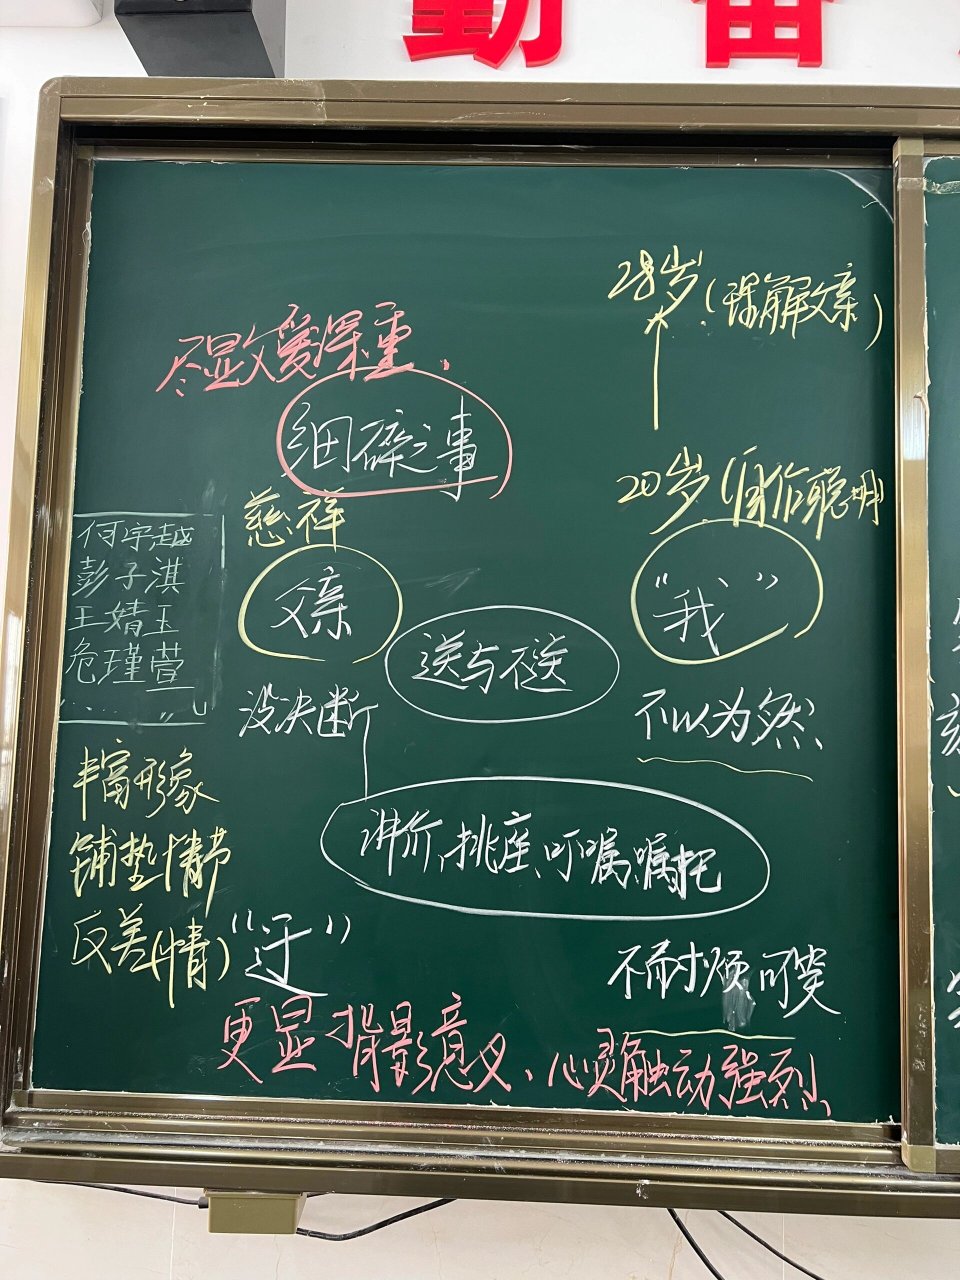 勤奋
28岁(理解父亲)
尽显父爱深重.
细碎之事
20岁(自作聪明)
慈祥
何宇越
彭子淇
王婧玉
危瑾萱
父亲
“我”
送与不送
没决断
不以为然
丰富形象
铺垫情节
反差(情)
讲价、挑座、叮嘱、嘱托
“迂”
不耐烦 可笑
更显背影意义、心灵触动强烈、